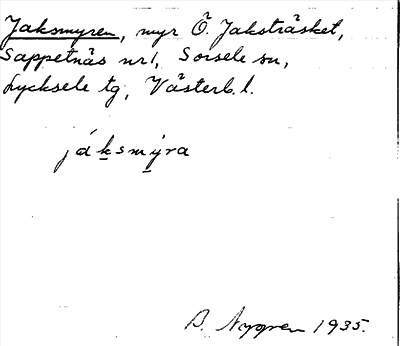 Jaksmyren, myr Ö. Jaksträsket,
Sappetnäs nr1, Sorsele sn,
Lycksele tg, Västerb. l.
jáksmýra
B. Nygren 1935.